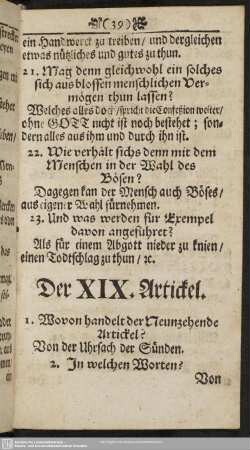 (39)
ein Handwerck zu treiben/ und dergleichen
etwas nützliches und gutes zu thun.
21. Mag denn gleichwohl ein solches
sich aus blossen menschlichen Ver-
mögen thun lassen?
Welches alles doch/ spricht die Confeßion weiter/
ohne GOTT nicht ist noch bestehet; son-
dern alles aus ihm und durch ihn ist.
22. Wie verhält sichs denn mit dem
Menschen in der Wahl des
Bösen?
Dagegen kan der Mensch auch Böses/
aus eigener Wahl fürnehmen.
23. Und was werden für Exempel
davon angeführet?
Als für einem Abgott nieder zu knien/
einen Todtschlag zu thun/ ꝛc.
Der XIX. Artickel.
1. Wovon handelt der Neunzehende
Artickel?
Von der Uhrsach der Sünden.
2. In welchen Worten?
Von